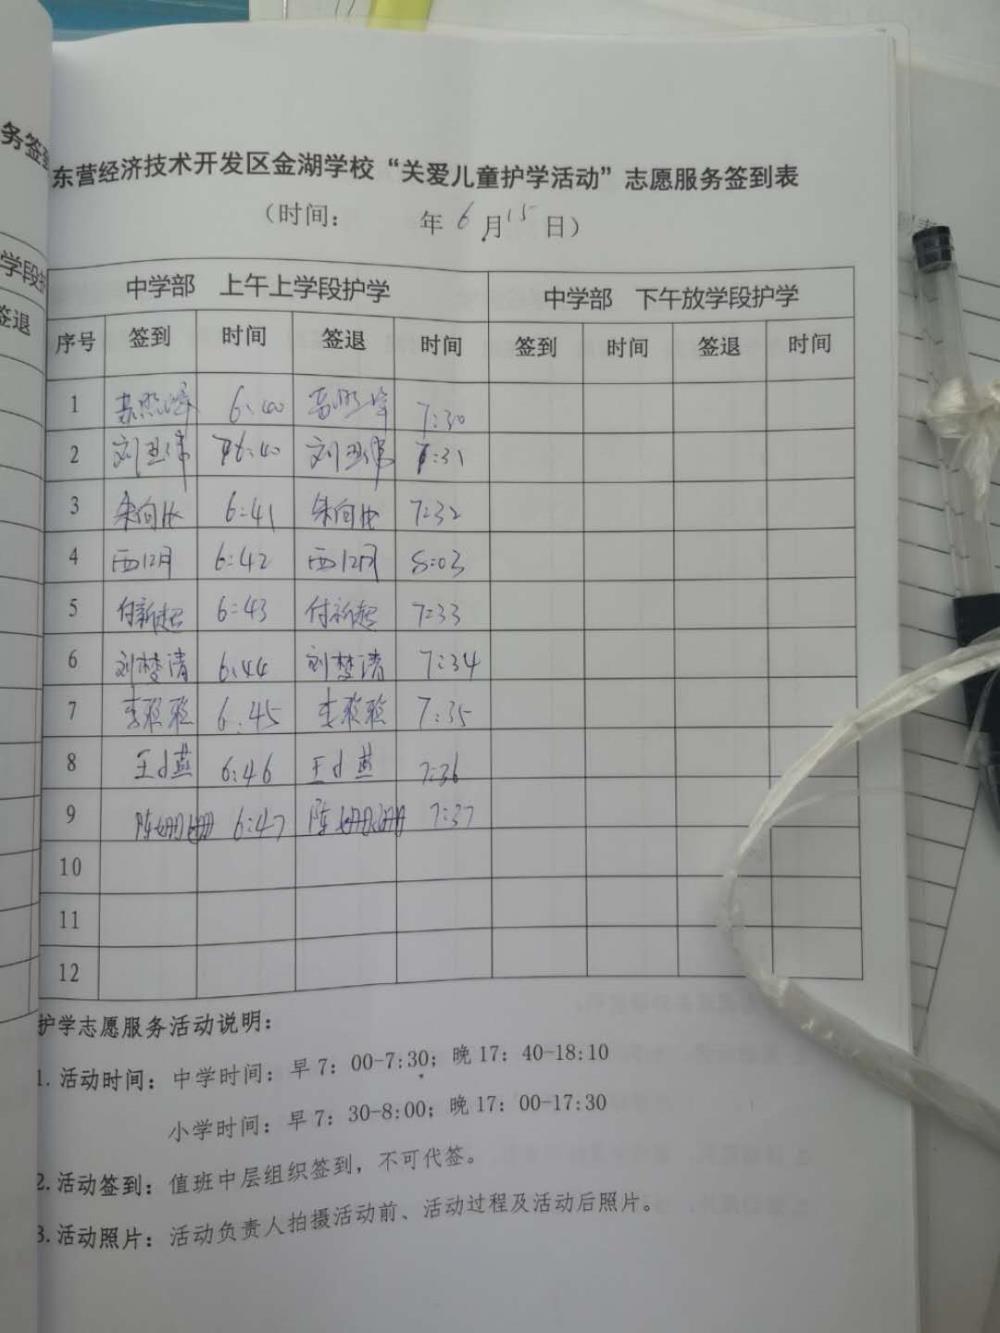 务签到
学段护
签退
东营经济技术开发区金湖学校“关爱儿童护学活动”志愿服务签到表
（时间： 年 6 月 15 日）
中学部 上午上学段护学 中学部 下午放学段护学
序号 签到 时间 签退 时间 签到 时间 签退 时间
1 6:40 7:30
2 刘亚伟 6:40 刘亚伟 7:31
3 朱向收 6:41 朱向收 7:32
4 6:42 8:03
5 付新超 6:43 付新超 7:33
6 刘梦清 6:44 刘梦清 7:34
7 李聪聪 6:45 李聪聪 7:35
8 王小燕 6:46 王小燕 7:36
9 陈姗姗 6:47 陈姗姗 7:37
10
11
12
护学志愿服务活动说明：
1. 活动时间：中学时间：早 7：00-7:30；晚 17：40-18:10
小学时间：早 7：30-8:00；晚 17：00-17:30
2. 活动签到：值班中层组织签到，不可代签。
3. 活动照片：活动负责人拍摄活动前、活动过程及活动后照片。